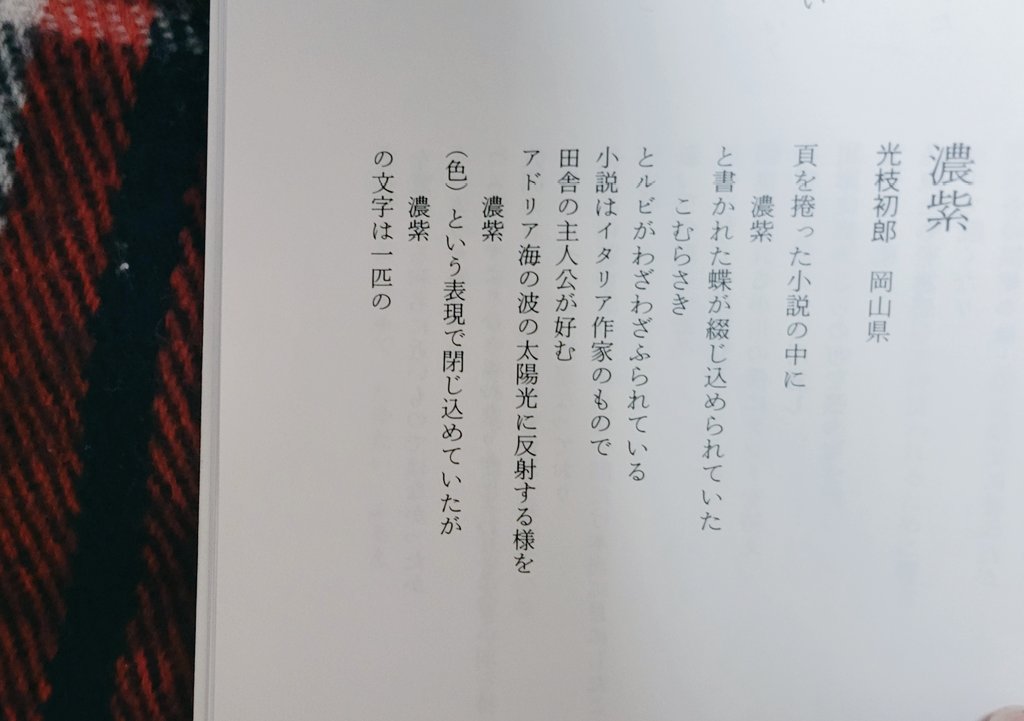 い
濃紫
光枝初郎　岡山県
頁を捲った小説の中に
濃紫
と書かれた蝶が綴じ込められていた
こむらさき
とルビがわざわざふられている
小説はイタリア作家のもので
田舎の主人公が好む
アドリア海の波の太陽光に反射する様を
濃紫
（色）という表現で閉じ込めていたが
濃紫
の文字は一匹の